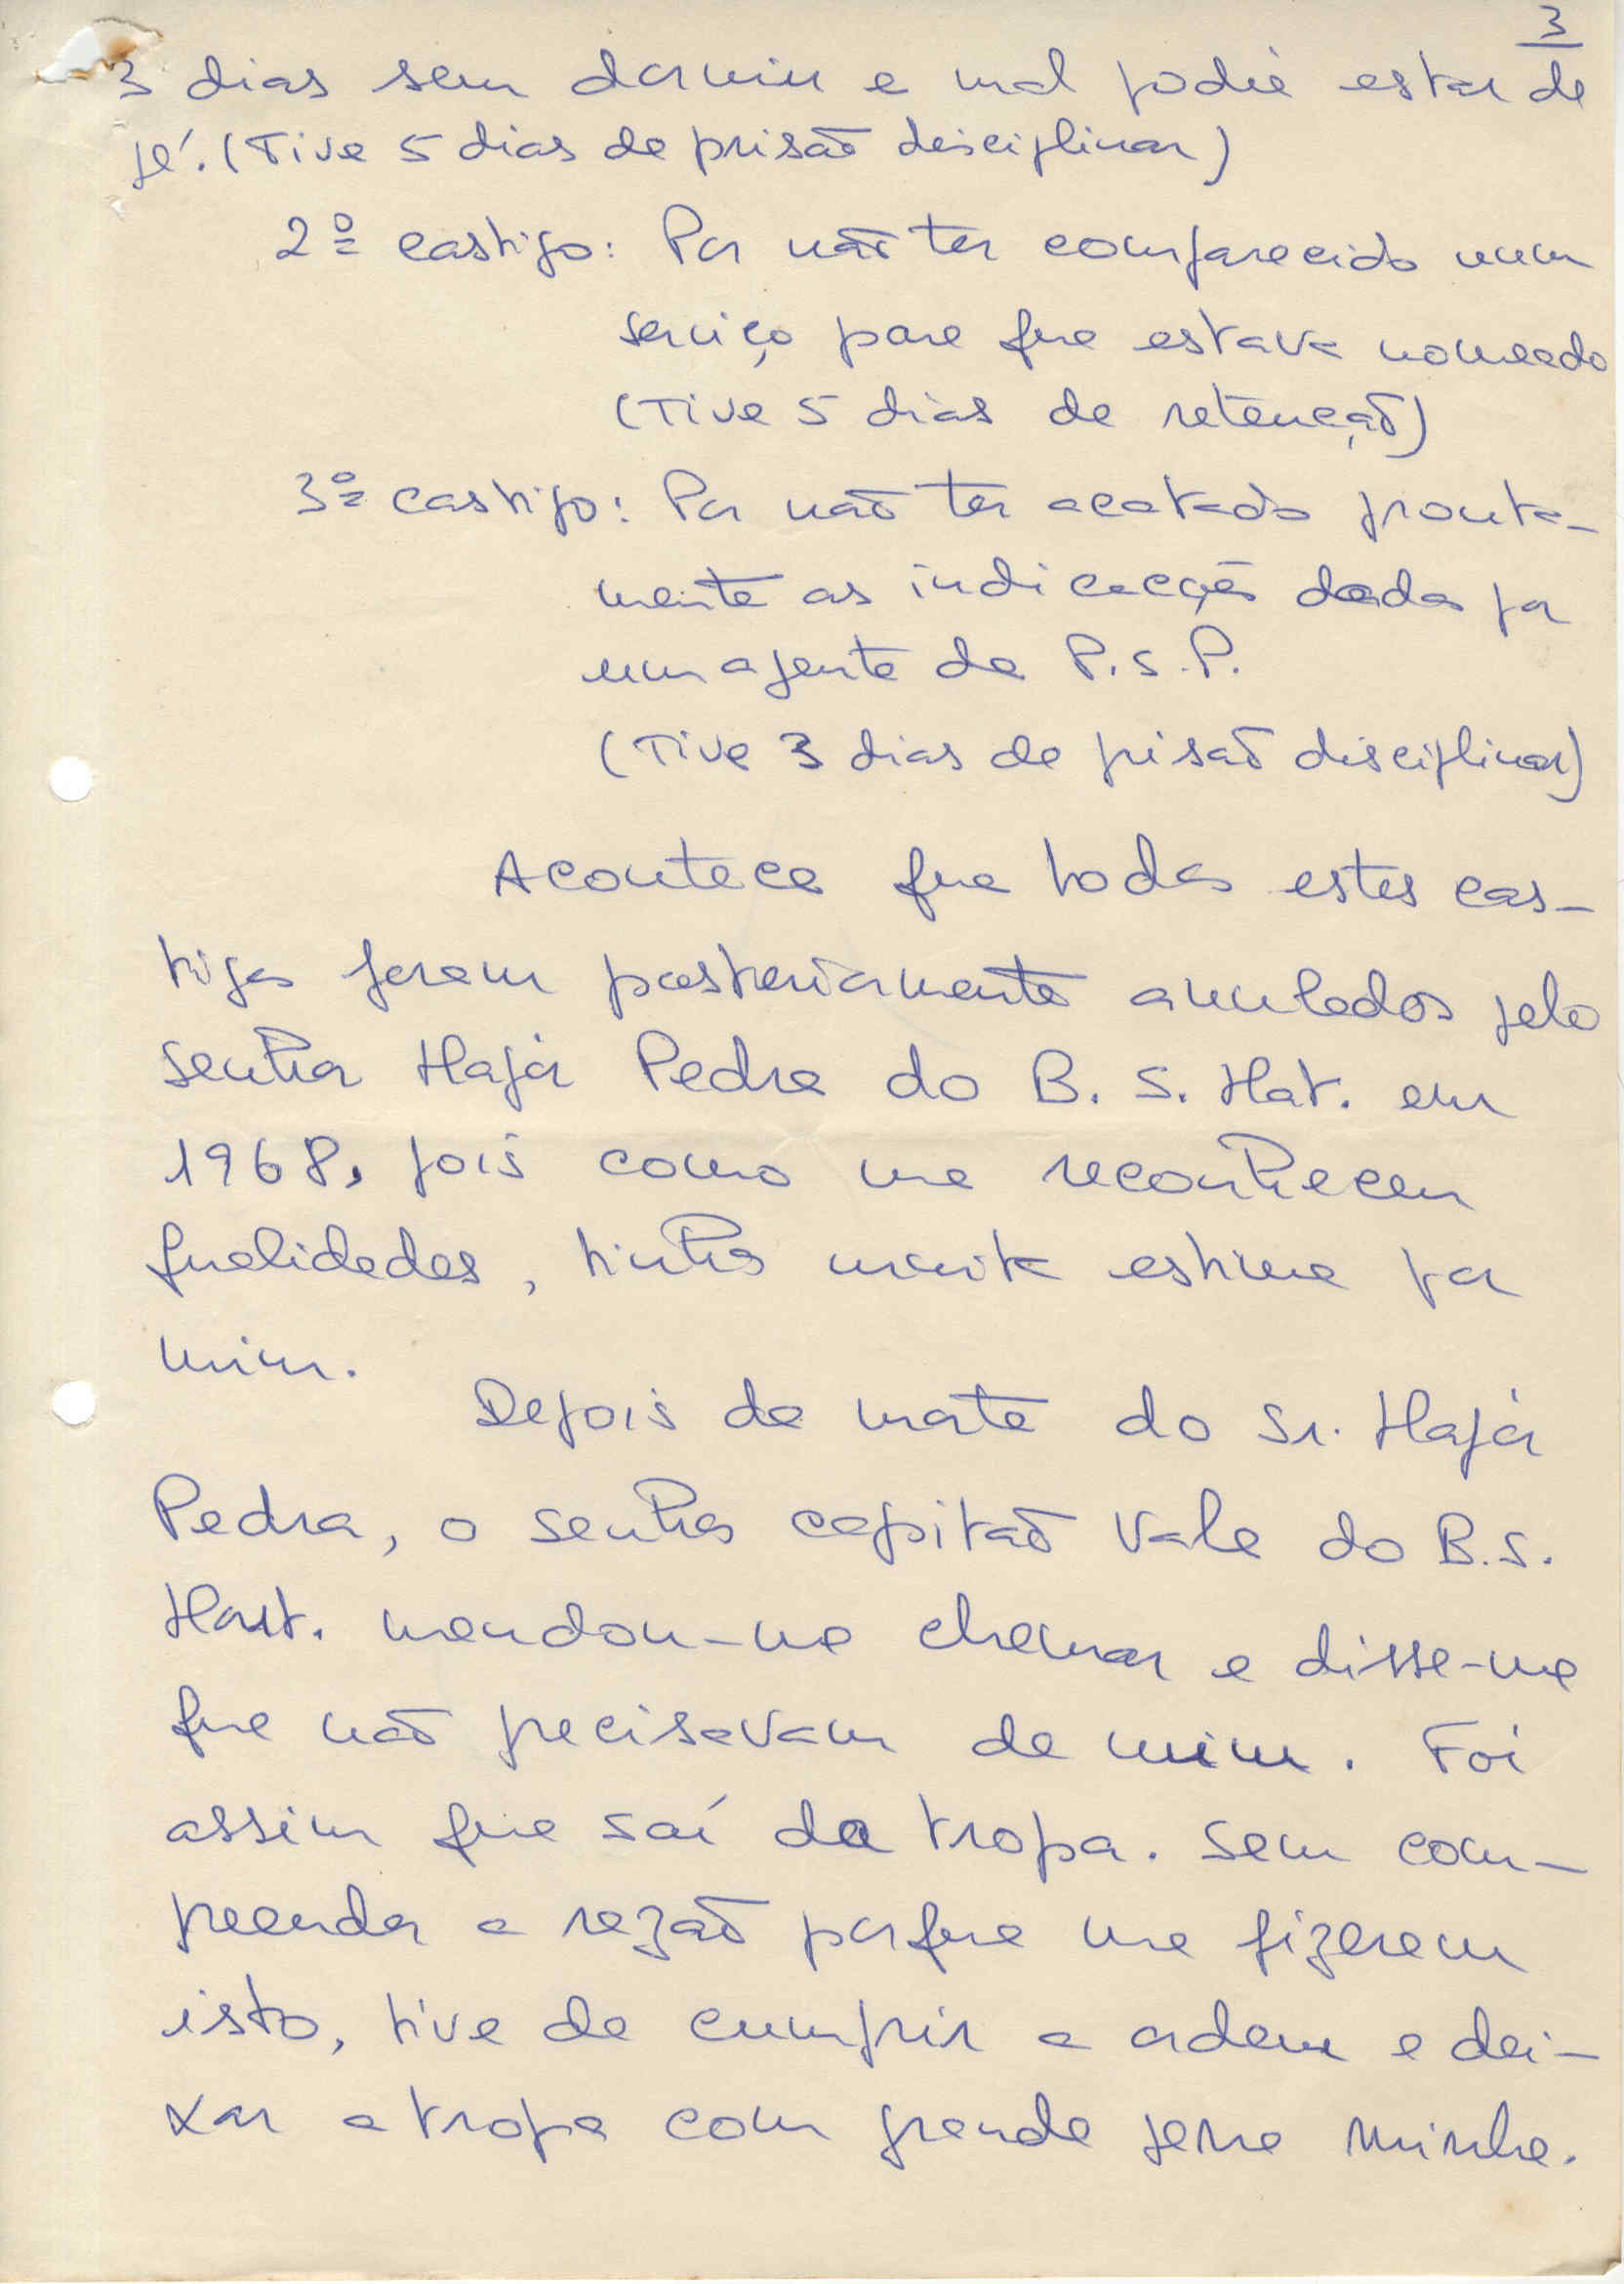 3
3 dias sem dormir e mal podia estar de
pé. (Tive 5 dias de prisão disciplinar)
2º castigo: Por não ter comparecido num
serviço para que estava nomeado
(Tive 5 dias de retenção)
3º castigo: Por não ter acatado pronta-
mente as indicações dadas por
um agente da P.S.P.
(Tive 3 dias de prisão disciplinar)
Acontece que todos estes cas-
tigos foram posteriormente anulados pelo
senhor Major Pedra do B. S. Mat. em
1968, pois como me reconheceu
qualidades, tinha muita estima por
mim.
Depois da morte do Sr. Major
Pedra, o senhor capitão Vale do B.S.
Mat. mandou-me chamar e disse-me
que não precisavam de mim. Foi
assim que saí da tropa. Sem com-
preender a razão porque me fizeram
isto, tive de cumprir a ordem e dei-
xar a tropa com grande pena minha.